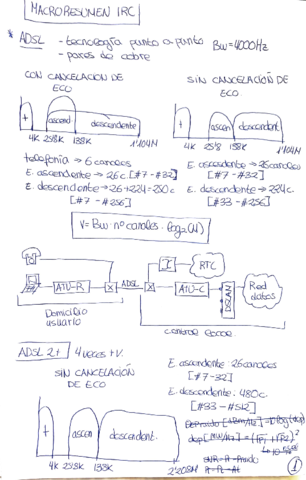 MACRORESUMEN IRC
* ADSL - tecnología punto a punto BW=4000Hz
- pares de cobre
CON CANCELACION DE ECO
SIN CANCELACIÓN DE ECO.
ascend descendente
4K 25'8K 138K 1'104M
ascen descendent
4K 25'8 138K 1'104M
telefonía → 6 canales
E. ascendente → 26c [#7 - #32]
E. descendente → 26+224=250c [#7 - #256]
E. ascendente → 26canales [#7 - #32]
E. descendente → 224c. [#33 - #256]
V = BW · nº canales · log₂(M)
ATU-R ADSL ATU-C DSLAM RTC Red datos
Domicilio usuario
central local
ADSL 2+ 4 veces +V.
SIN CANCELACIÓN DE ECO
E. ascendente: 26canales [#7-32]
E. descendente: 480c. [#33 - #512]
ascen descendent.
4K 25'8K 138K 2'208M
1